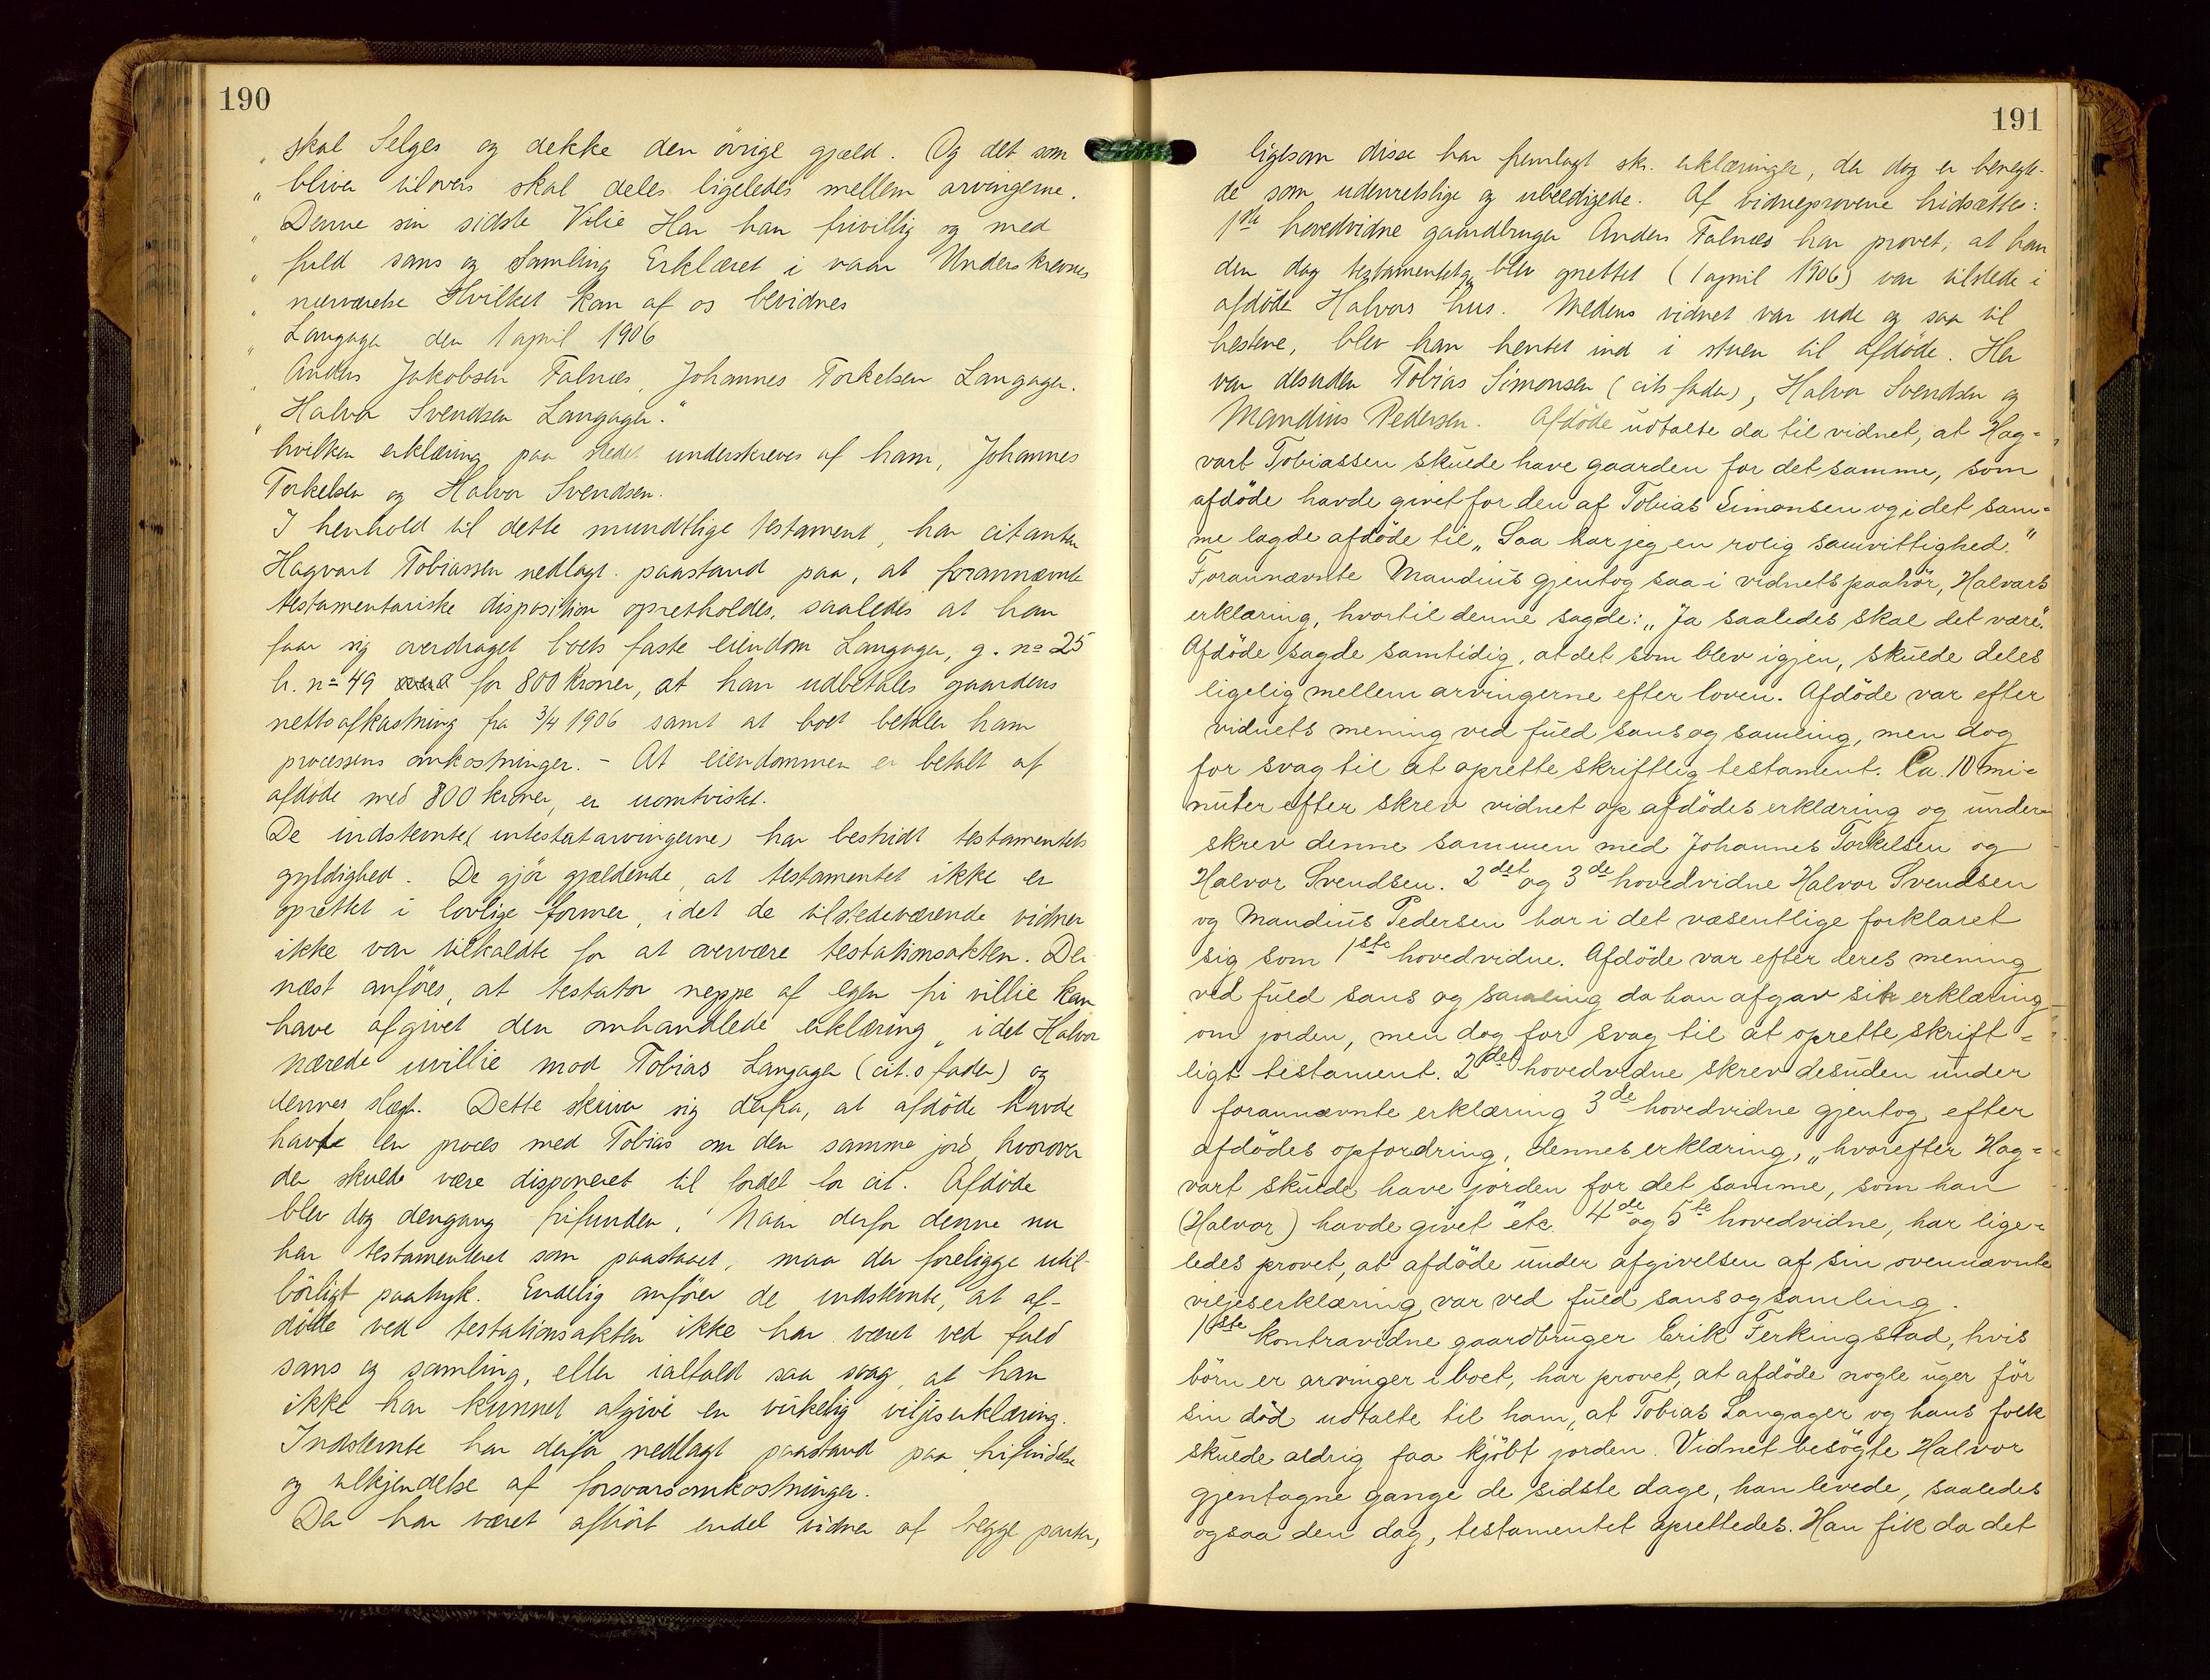 190
„ skal Selges og dekke den øvrige gjæld. Og det som
„ bliver tilovers skal deles ligeledes mellem arvingerne.
„ Denne sin sidste Vilie Har han frivillig og med
„ fuld sans og Samling Erklæret i vaar Underskrevnes
„ nærværelse Hvilket kan af os bevidnes
„ Langager den 1 april 1906
„ Anders Jakobsen Falnæs, Johannes Torkelsen Langager.
„ Halvor Svendsen Langager."
hvilken erklæring paa stedet underskreves af ham, Johannes
Torkelsen og Halvor Svendsen.
I henhold til dette mundtlige testament, har citanten
Hagvart Tobiassen nedlagt paastand paa, at forannævnte
testamentariske disposition opretholdes, saaledes at han
faar sig overdraget boets faste eiendom Langager, g. no 25
b. no 49 for 800 kroner, at han udbetales gaardens
nettoafkastning fra 3/4 1906 samt at boet betaler ham
processens omkostninger. - At eiendommen er betalt af
afdøde med 800 kroner, er uomtvistet.
De indstevnte (intestatarvingerne) har bestridt testamentets
gyldighed. De gjør gjældende, at testamentet ikke er
oprettet i lovlige former, idet de tilstedeværende vidner
ikke var tilkaldte for at overvære testationsakten. Der-
næst anføres, at testator neppe af egen fri villie kan
have afgivet den omhandlede erklæring, idet Halvor
nærede uvillie mod Tobias Langager (cit.s fader) og
dennes slægt. Dette skriver sig derfra, at afdøde havde
havt en proces med Tobias om den samme jord, hvorover
der skulde være disponeret til fordel for cit. Afdøde
blev dog dengang frifunden. Naar derfor denne nu
har testamenteret som paastaaet, maa der foreligge util-
børligt paatryk. Endelig anfører de indstevnte, at af-
døde ved testationsakten ikke har været ved fuld
sans og samling, eller ialfald saa svag, at han
ikke har kunnet afgive en virkelig viljeserklæring.
Indstevnte har derfor nedlagt paastand paa frifindelse
og tilkjendelse af forsvarsomkostninger.
Der har været afhørt endel vidner af begge parter,
191
ligesom disse har fremlagt skr. erklæringer, der dog er benegte-
de som udenretslige og ubeedigede. Af vidneprovene hidsættes:
1ste hovedvidne gaardbruger Anders Falnæs har provet, at han
den dag testamentet blev oprettet (1 april 1906) var tilstede i
afdøde Halvors hus. Medens vidnet var ude og saa til
hestene, blev han hentet ind i stuen til afdøde. Her
var desuden Tobias Simonsen (cits fader), Halvor Svendsen og
Mandius Pedersen. Afdøde udtalte da til vidnet, at Hag-
vart Tobiassen skulde have gaarden for det samme, som
afdøde havde givet for den af Tobias Simonsen og i det sam-
me lagde afdøde til „Saa har jeg en rolig samvittighed."
Forannævnte Mandius gjentog saa i vidnets paahør, Halvors
erklæring, hvortil denne sagde: „Ja saaledes skal det være".
Afdøde sagde samtidig, at det som blev igjen, skulde deles
ligelig mellem arvingerne efter loven. Afdøde var efter
vidnets mening ved fuld sans og samling, men dog
for svag til at oprette skriftlig testament. Ca. 10 mi-
nuter efter skrev vidnet op afdødes erklæring og under-
skrev denne sammen med Johannes Torkelsen og
Halvor Svendsen. 2det og 3de hovedvidne Halvor Svendsen
og Mandius Pedersen har i det væsentlige forklaret
sig som 1ste hovedvidne. Afdøde var efter deres mening
ved fuld sans og samling da han afgav sin erklæring
om jorden, men dog for svag til at oprette skrift-
ligt testament. 2det hovedvidne skrev desuden under
forannævnte erklæring 3de hovedvidne gjentog efter
afdødes opfordring, dennes erklæring, „hvorefter Hag-
vart skulde have jorden for det samme, som han
(Halvor) havde givet" etc. 4de og 5te hovedvidne, har lige-
ledes provet, at afdøde under afgivelsen af sin ovennævnte
viljeserklæring var ved fuld sans og samling.
1ste kontravidne gaardbruger Erik Ferkingstad, hvis
børn er arvinger i boet, har provet, at afdøde nogle uger før
sin død udtalte til ham, „at Tobias Langager og hans folk
skulde aldrig faa kjøbt jorden. Vidnet besøgte Halvor
gjentagne gange de sidste dage, han levede, saaledes
ogsaa den dag, testamentet oprettedes. Han fik da det